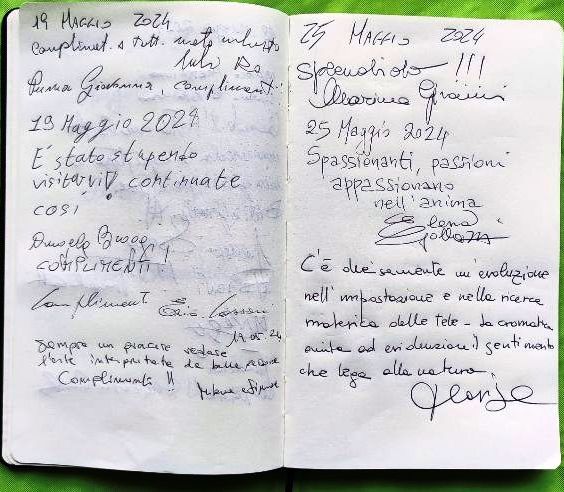 19 Maggio 2024
Compliment. a tutti. molto
Puma Giovanna, complimenti
19 Maggio 2024
E' stato stupendo
visitarvi! continuate
così
Angelo
COMPLIMENTI!
Compliment
19.05.24
Sempre un piacere vedere
l'arte interpretata da
Complimenti !!
25 Maggio 2024
Splendido !!!
Marina
25 Maggio 2024
Spassionanti, passioni
appassionano
nell'anima
Elena
C'è decisamente un'evoluzione
nell'impostazione e nella ricerca
materica delle tele - la cromatia
aiuta ad evidenziare il sentimento
che lega alla natura.